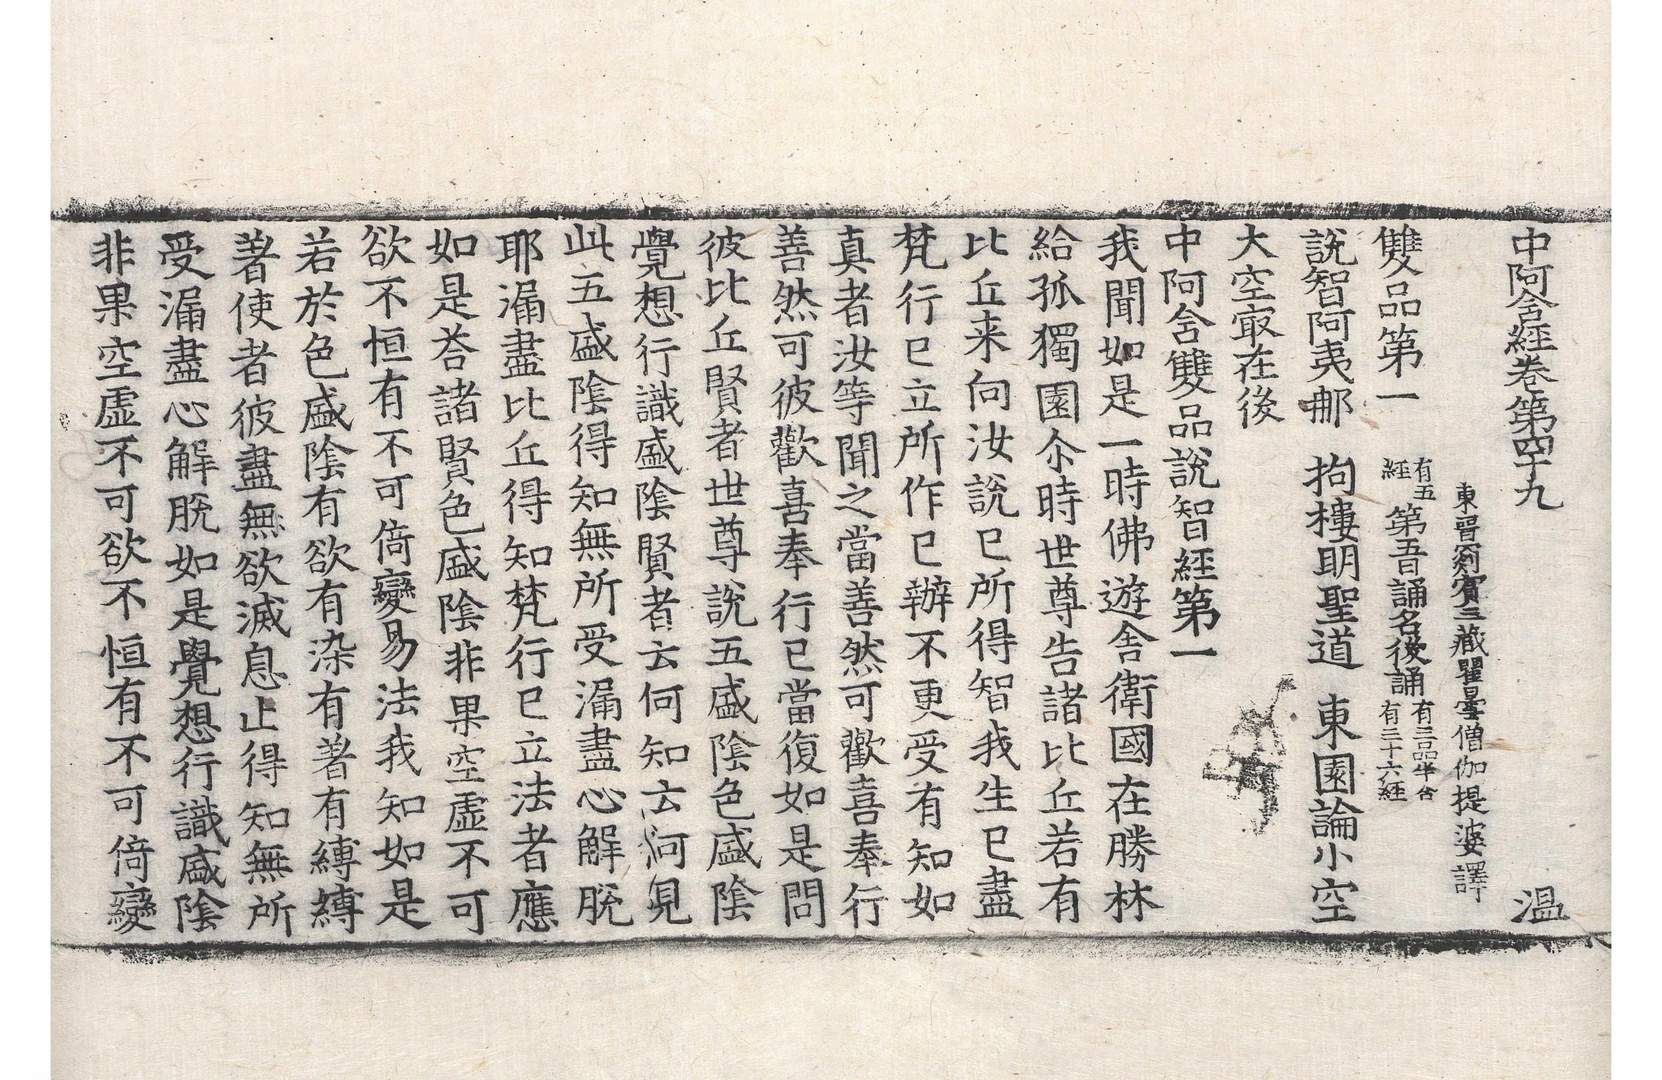 中阿含經卷第四十九　溫
東晉罽賓三藏瞿曇僧伽提婆譯
雙品第一 有五經 第五後誦名後誦 有三品半合有三十六經
說智阿夷那　拘樓明聖道　東園論小空
大空㝡在後
中阿含雙品說智經第一
我聞如是一時佛遊舍衛國在勝林
給孤獨園尒時世尊告諸比丘若有
比丘来向汝說已所得智我生已盡
梵行已立所作已辦不更受有知如
真者汝等聞之當善然可歡喜奉行
善然可彼歡喜奉行已當復如是問
彼比丘賢者世尊說五盛陰色盛陰
覺想行識盛陰賢者云何知云何見
此五盛陰得知無所受漏盡心解脫
耶漏盡比丘得知梵行已立法者應
如是荅諸賢色盛陰非果空虛不可
欲不恒有不可倚變易法我知如是
若於色盛陰有欲有染有著有縛縛
著使者彼盡無欲滅息止得知無所
受漏盡心解脫如是覺想行識盛陰
非果空虛不可欲不恒有不可倚變